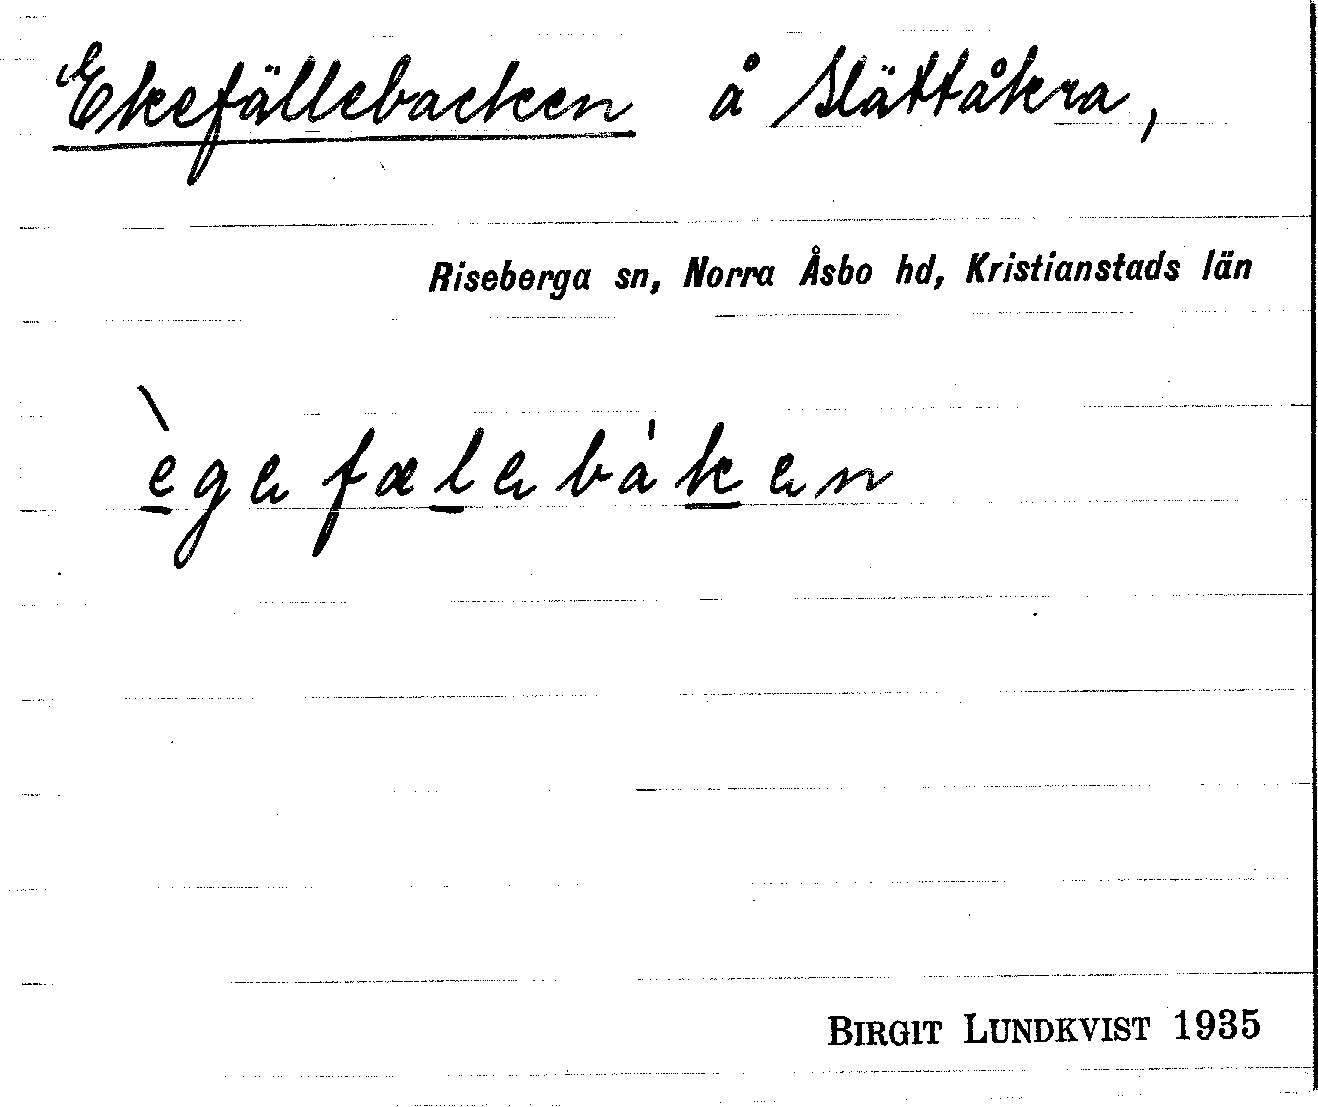 Ekefällebacken å Slättåkra,
Riseberga sn, Norra Åsbo hd, Kristianstads län
ègefælebáken
BIRGIT LUNDKVIST 1935